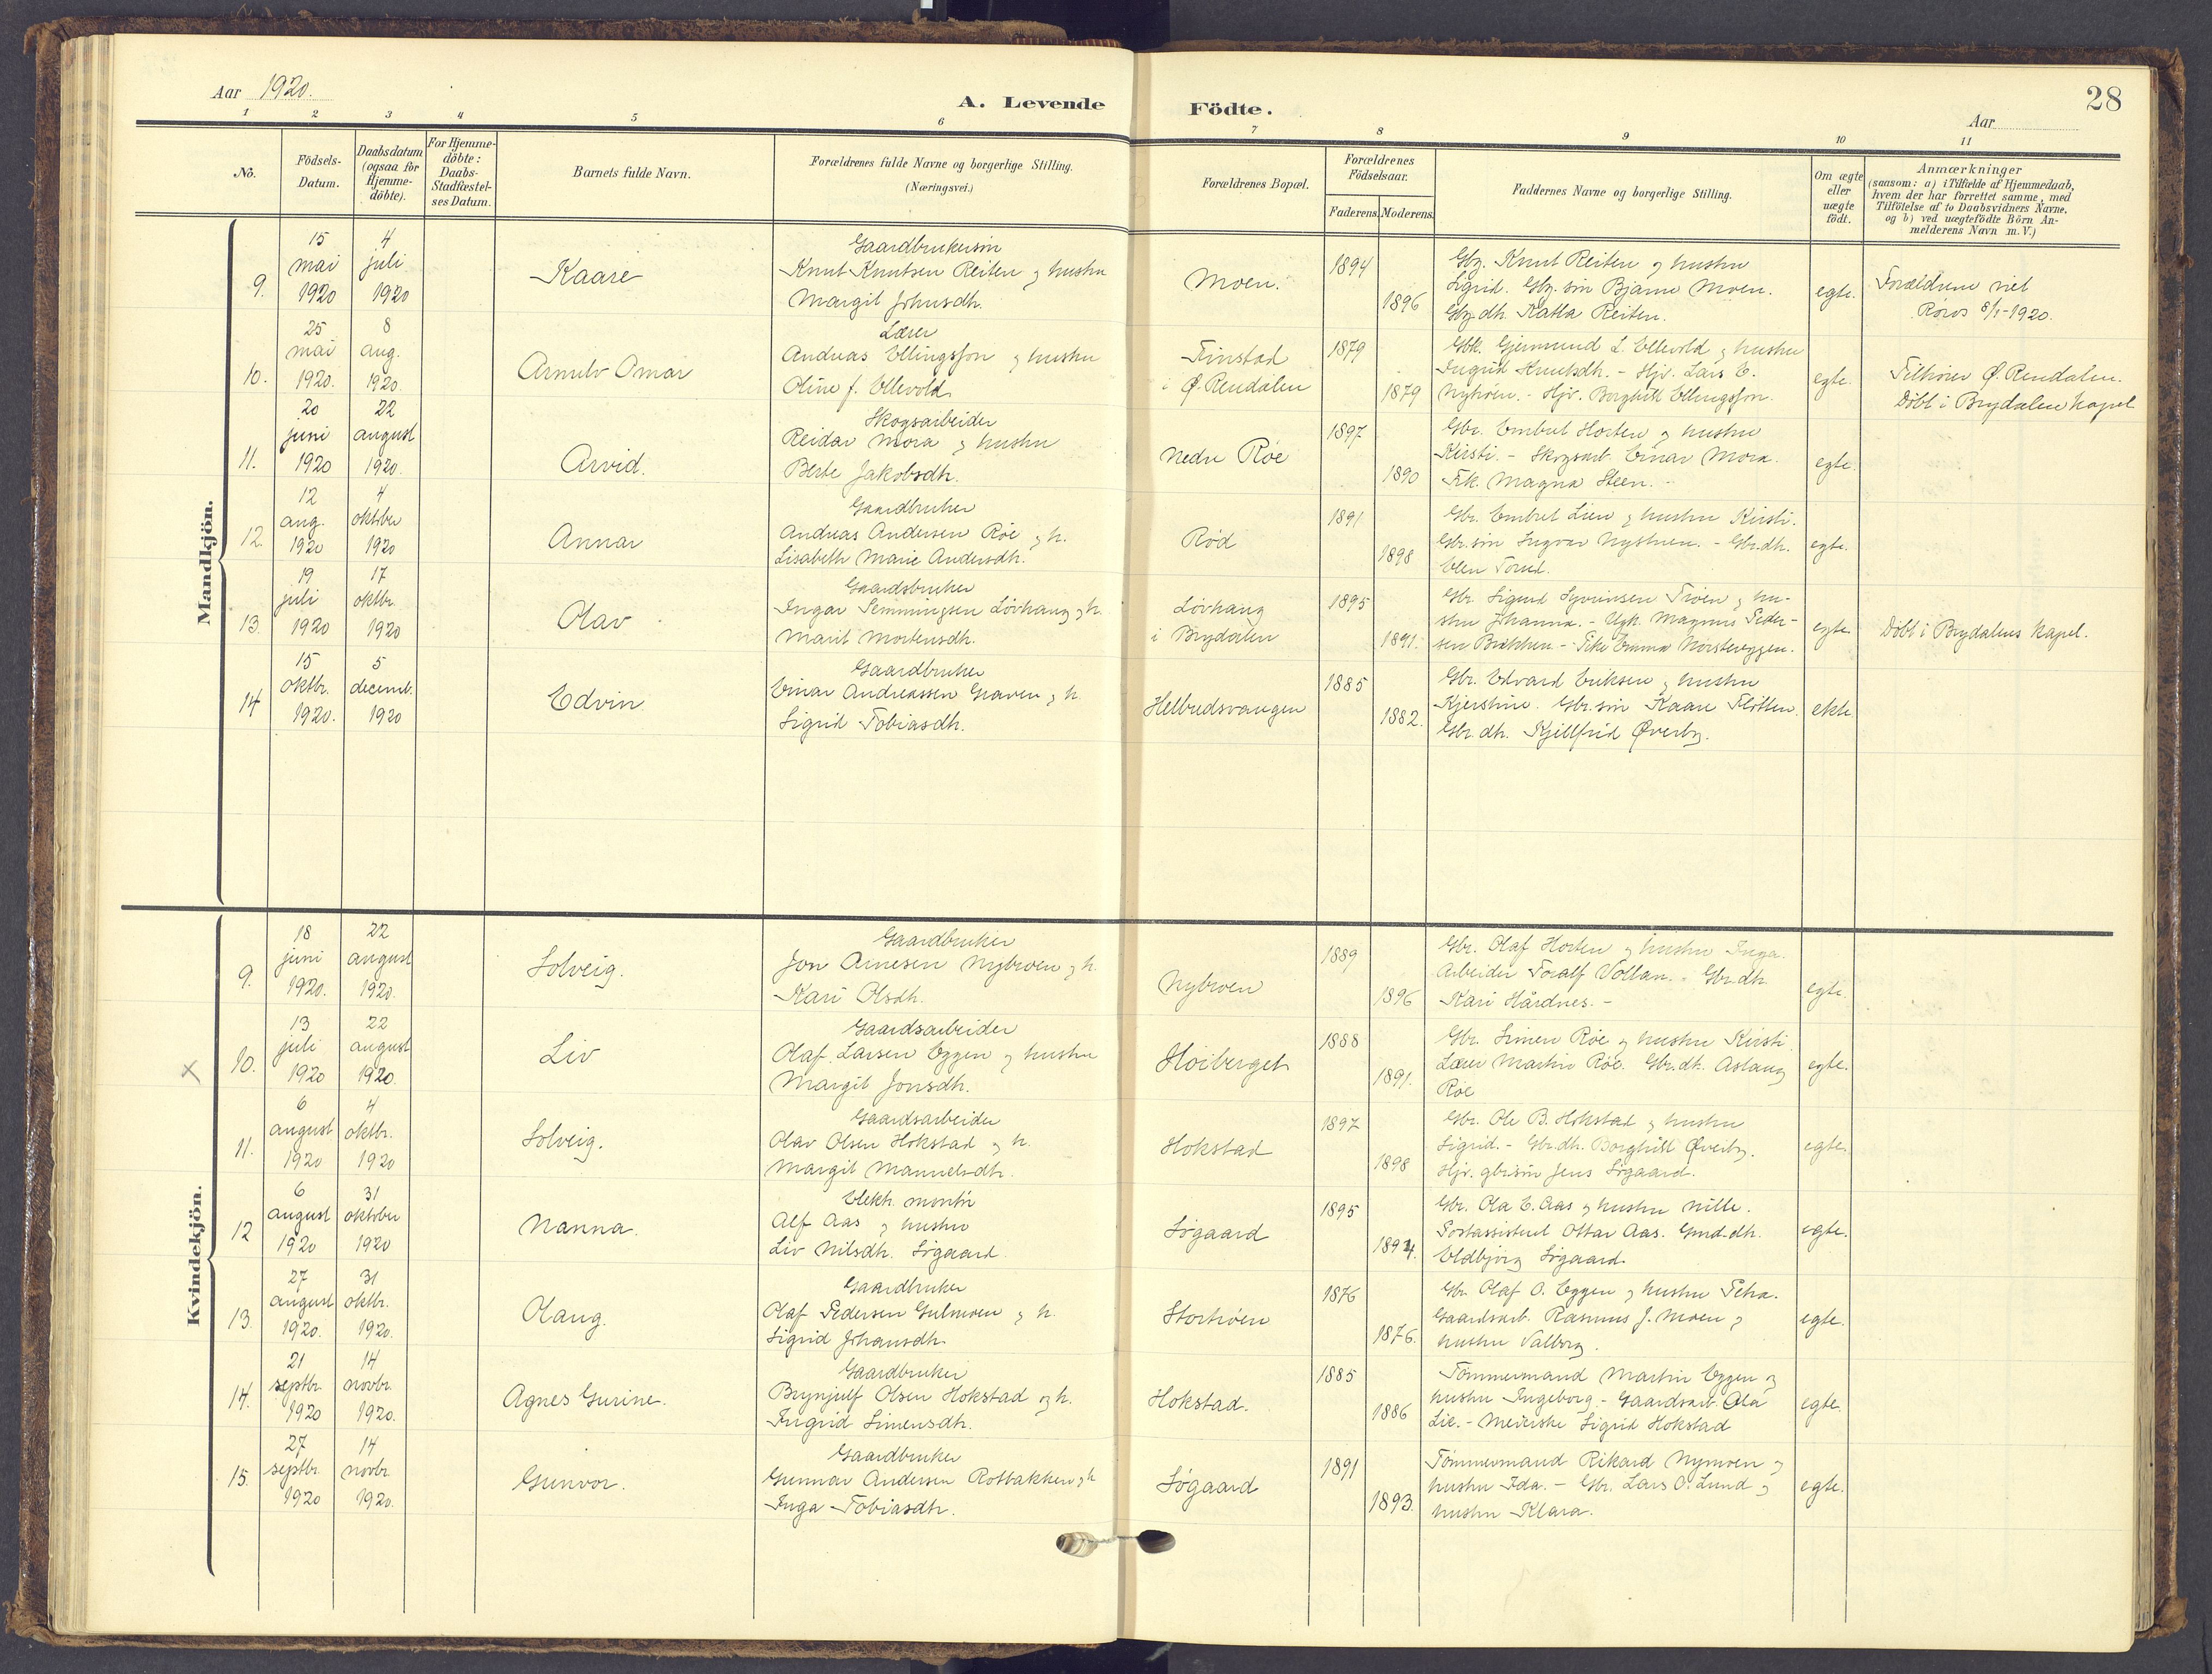 Aar 1920.
A. Levende Födte.
28
Aar
1 2 3 4 5 6 7 8 9 10 11
No.
Födsels-Datum.
Daabsdatum (ogsaa for Hjemme-döbte).
For Hjemme-döbte: Daabs-Stadfæstel-ses Datum.
Barnets fulde Navn.
Forældrenes fulde Navne og borgerlige Stilling. (Næringsvei.)
Forældrenes Bopæl.
Forældrenes Födselsaar.
Faderens. Moderens.
Faddernes Navne og borgerlige Stilling.
Om ægte eller uægte födt.
Anmærkninger
(saasom: a) i Tilfælde af Hjemmedaab, hvem der har forrettet samme, med Tilföielse af to Daabsvidners Navne, og b) ved uægtefödte Börn Anmelderens Navn m. V.)
Mandkjön.
9. 15 mai 1920 4 juli 1920
Kaare
Gaardbrukersøn
Knut Knutsen Reiten og hustru
Margit Johnsdh.
Moen.
1894 1896
Gbr. Knut Reiten og hustru
Sigrid. Gbr. søn Bjarne Moen.
Gbr. dh. Katla Reiten.
egte.
Forældrene viet
Røros 8/1-1920.
10. 25 mai 1920. 8 aug. 1920.
Arnulv Omar
Lærer
Andreas Ellingsfon og hustru
Oline f. Ellevold
Finstad
i Ø. Rendalen
1879 1879
Gbk. Gjermund L. Ellevold og hustru
Ingrid Knutsdh. - Hjv. Lars E.
Nyhøen. - Hjv. Borghild Ellingsfon.
egte.
Tilhører Ø. Rendalen.
Døbt i Brydalen kapel
11. 20 juni 1920 22 august 1920.
Arvid.
Skogsarbeider
Reidar Mora og hustru
Berte Jakobsdh.
Nedre Røe
1897 1890
Gbr. Embret Horten og hustru
Kirsti. - Skogsarb. Einar Mora.
Frk. Magna Steen. -
egte.
12. 12 aug. 1920 4 oktober 1920
Annar
Gaardbruker
Andreas Andersen Røe og h.
Lisabeth Marie Andersdh.
Rød
1891 1898
Gbr. Embret Lien og hustru Kirsti.
Gbr. søn Ingvar Nystuen. - Gbr. dh.
Elen Torud.
egte.
13. 19 juli 1920 17 oktbr. 1920
Olav
Gaardsbruker
Ingar Semmingsen Løvhaug og h.
Marit Mortensdh.
Løvhaug
i Brydalen
1895 1891.
Gbr. Sigurd Syverinsen Trøen og hu-
stru Johanna. - Ugk. Magnus Peder-
sen Brækken. - Pike Emma Norsteneggen.
egte
Døbt i Brydalens kapel.
14 15 oktbr. 1920. 5 decemb. 1920
Edvin
Gaardbruker
Einar Andreassen Graven og h.
Sigrid Tobiasdh.
Helbudsvangen
1885 1882.
Gbr. Edvard Eriksen og hustru
Kjerstine. Gbr. søn Kaare Fløtten.
Gbr. dh. Kjellfrid Øverby.
ekte
Kvindekjön.
9. 18 juni 1920. 22 august 1920.
Solveig.
Gaardbruker
Jon Arnesen Nybroen og h.
Kari Olsdh.
Nybroen
1889 1896
Gbr. Olaf Horten og hustru Inga.
Arbeider Toralf Vollan. - Gbr. dh.
Kari Hårdnes. -
egte.
X 10. 13 juli 1920 22 august 1920.
Liv
Gaardsarbeider
Olaf Larsen Eggen og hustru
Margit Jonsdh.
Høiberget
1888 1891.
Gbr. Simen Røe og hustru Kirsti
Lærer Martin Røe. Gbr. dh. Aslaug
Røe
egte.
11. 6 august 1920 4 oktbr. 1920
Solveig.
Gaardsarbeider
Olav Olsen Hokstad og h.
Margit Manuelsdh.
Hokstad
1897 1898
Gbr. Ole B. Hokstad og hustru
Sigrid. - Gbr. dh. Borghild Øverby.
Hjv. gbr. søn Jens Søgaard.
egte.
12 6 august 1920 31 oktober 1920
Nanna.
Elektr. montør
Alf Aas og hustru
Liv Nilsdh. Søgaard.
Søgaard
1895 1894.
Gbr. Ola E. Aas og hustru Nille.
Postassistent Ottar Aas. Gmd. dh.
Eldbjørg Søgaard.
egte.
13. 27 august 1920. 31 oktbr. 1920.
Olaug.
Gaardbruker
Olaf Pedersen Gulmoen og h.
Sigrid Johansdh.
Stortrøen
1876 1876.
Gbr. Olaf O. Eggen og hustru Petra.
Gaardsarb. Rasmus J. Moen og
hustru Valborg.
egte.
14. 21 septbr. 1920 14 novbr. 1920.
Agnes Gurine.
Gaardbruker
Brynjulf Olsen Hokstad og h.
Ingrid Simensdh.
Hokstad.
1885 1886
Tømmermand Martin Eggen og
hustru Ingeborg. - Gaardsarb. Ola
Lie. - Meierske Sigrid Hokstad
egte.
15. 27 septbr. 1920 14 novbr. 1920.
Gunvor.
Gaardbruker
Gunnar Andersen Rotbakken og h
Inga Tobiasdh.
Søgaard
1891 1893.
Tømmermand Rikard Nymoen og
hustru Ida. - Gbr. Lars O. Lund og
hustru Klara.
egte.